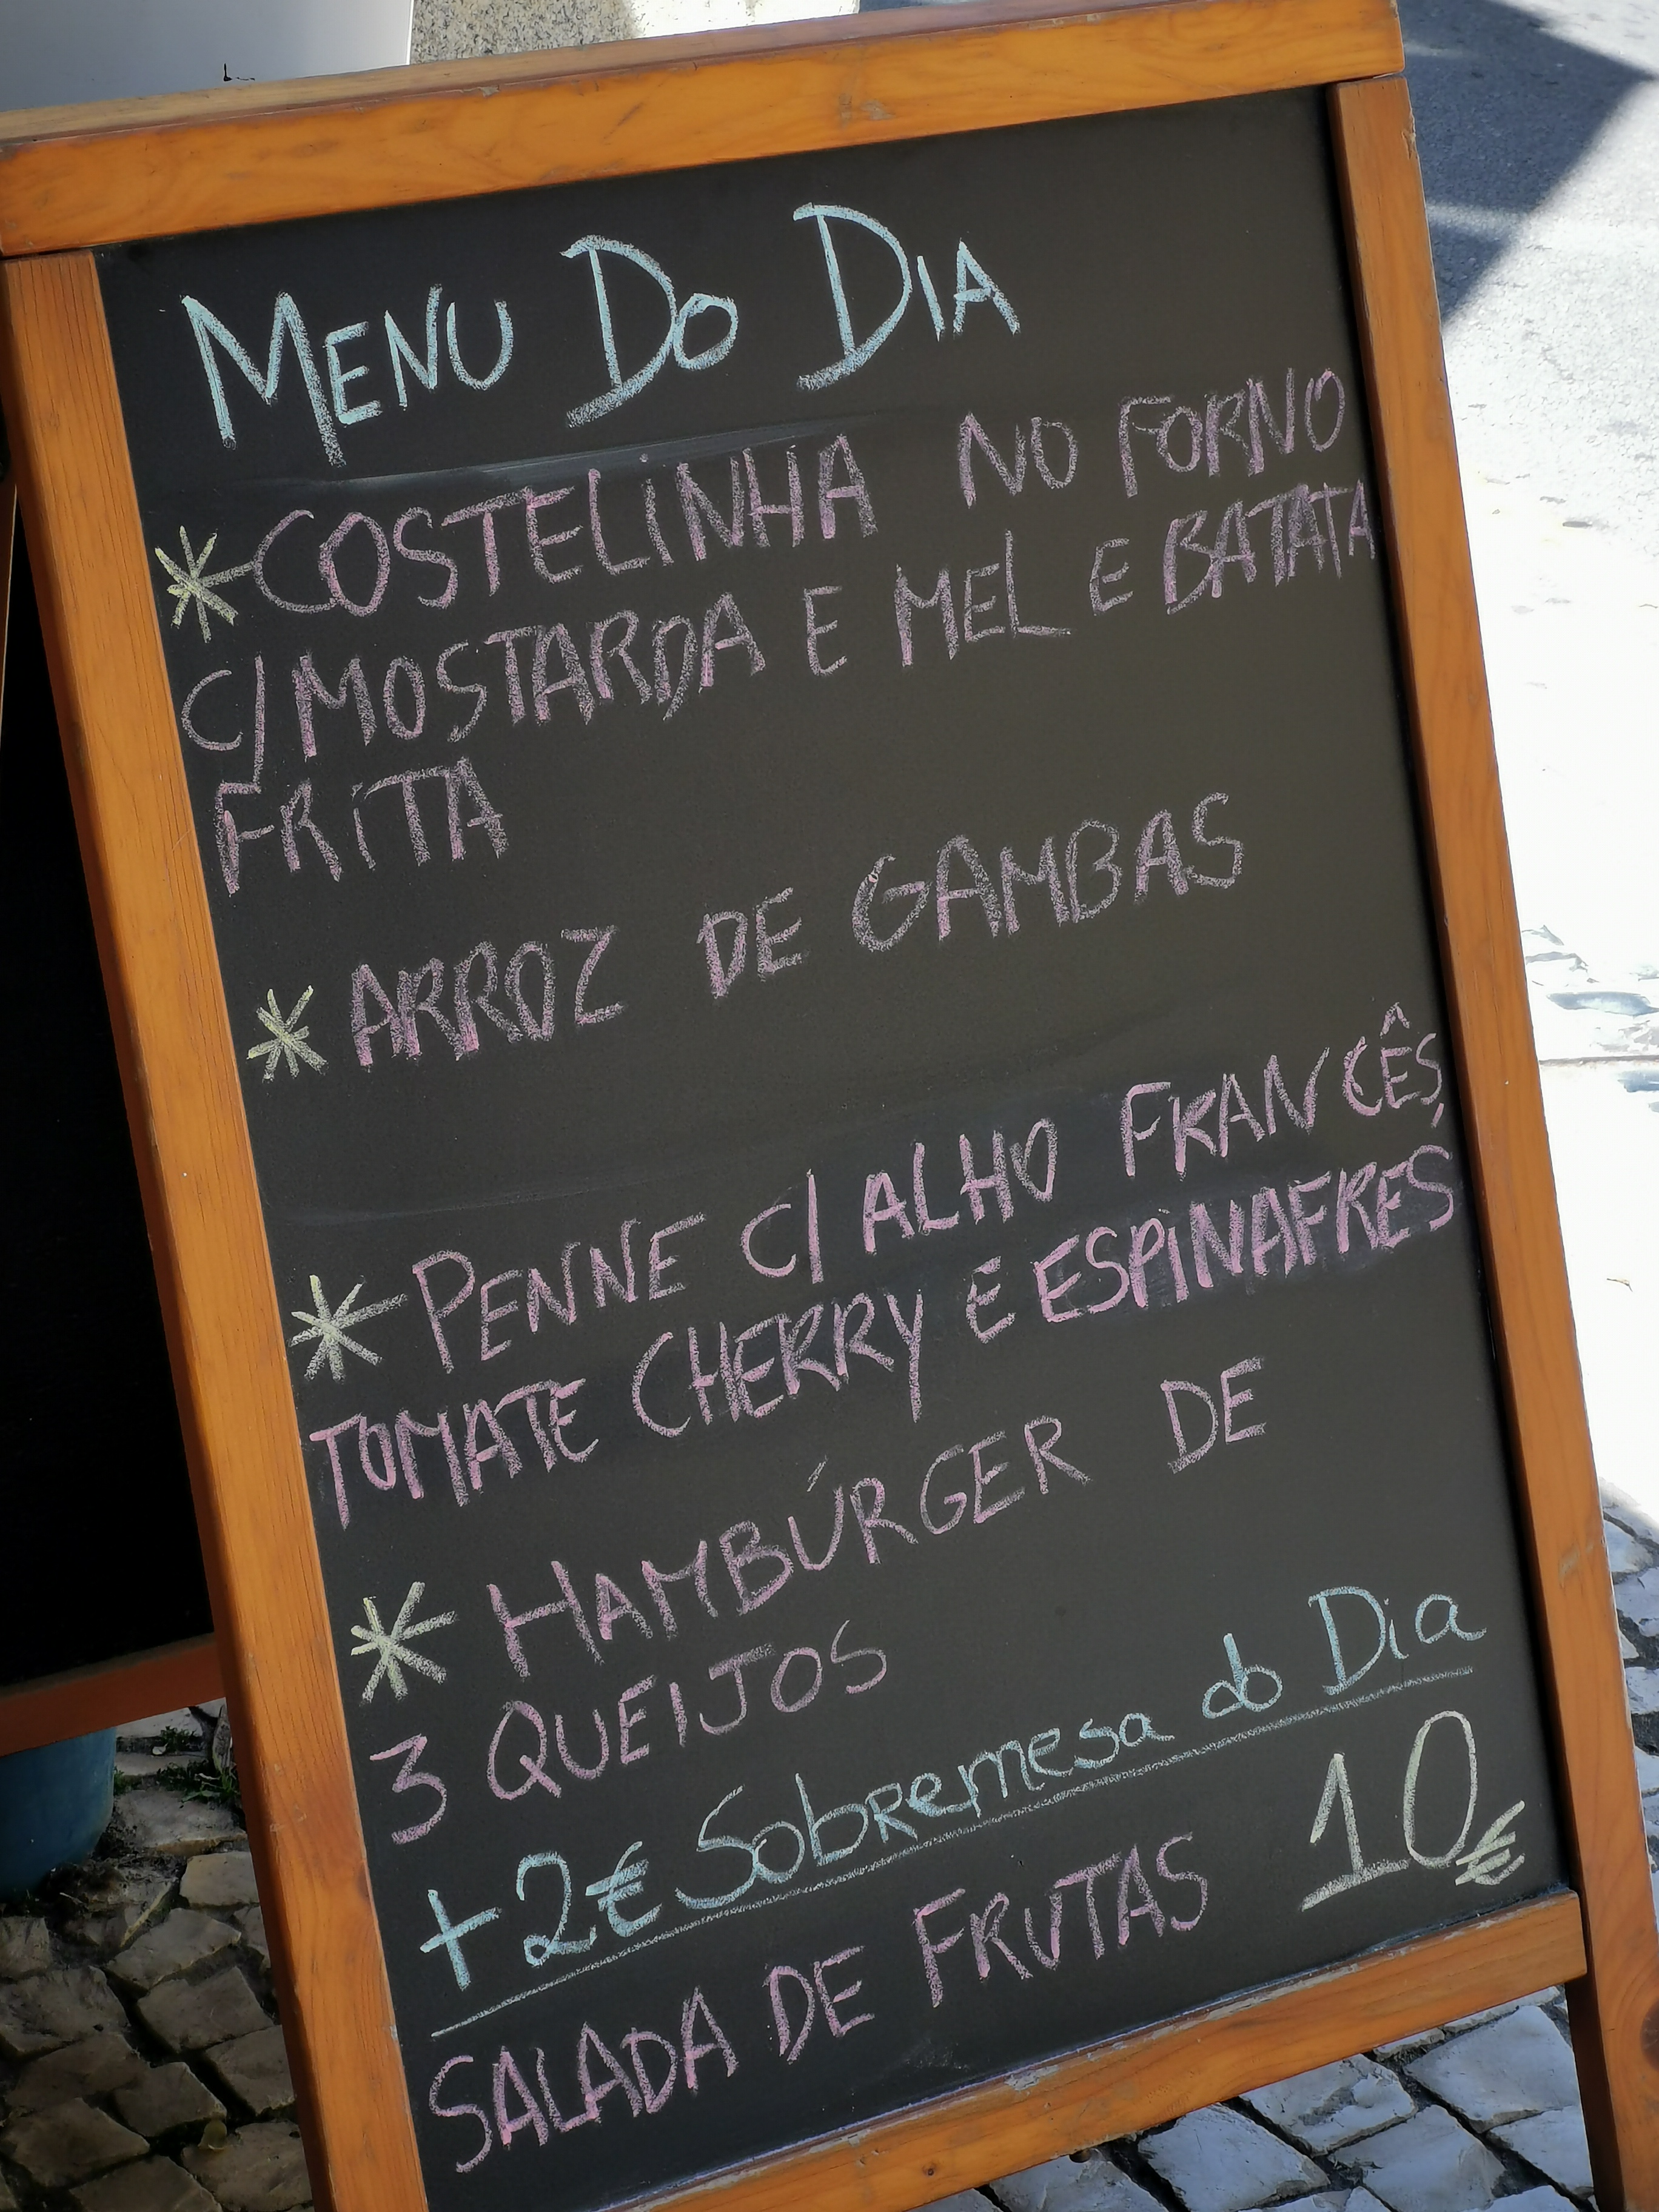 MENU DO DIA
* COSTELINHA NO FORNO
C/ MOSTARDA E MEL E BATATA
FRITA
* ARROZ DE GAMBAS
* PENNE C/ ALHO FRANCÊS,
TOMATE CHERRY E ESPINAFRES
* HAMBÚRGER DE
3 QUEIJOS
+2€ Sobremesa do Dia
SALADA DE FRUTAS 10€